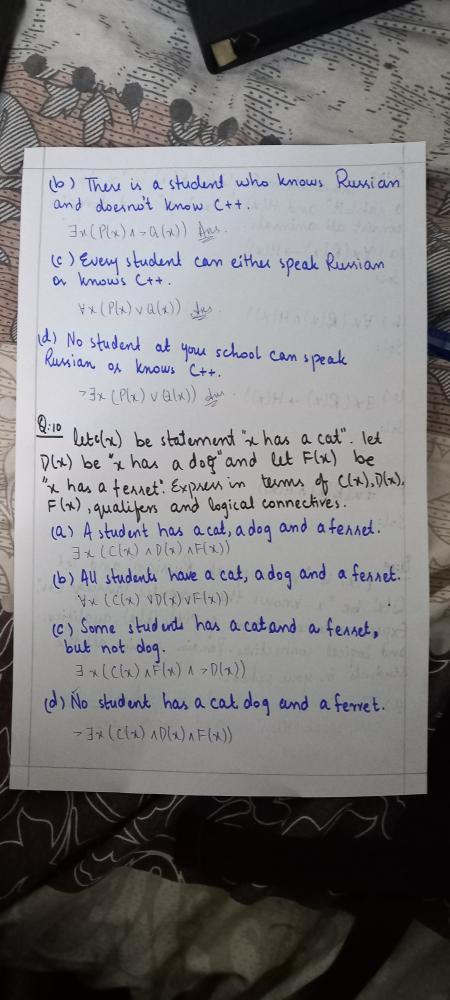 (b) There is a student who knows Russian
and doesno't know C++.
∃x(P(x)∧¬Q(x)) Ans.
(c) Every student can either speak Russian
or knows C++.
∀x(P(x)∨Q(x)) Ans
(d) No student at your school can speak
Russian or knows C++.
¬∃x(P(x)∨Q(x)) Ans
Q:10 let c(x) be statement "x has a cat". let
D(x) be "x has a dog" and let F(x) be
"x has a ferret". Express in terms of C(x), D(x),
F(x), qualifers and logical connectives.
(a) A student has a cat, a dog and a ferret.
∃x(C(x)∧D(x)∧F(x))
(b) All students have a cat, a dog and a ferret.
∀x(C(x)∨D(x)∨F(x))
(c) Some students has a cat and a ferret,
but not dog.
∃x(C(x)∧F(x)∧¬D(x))
(d) No student has a cat, dog and a ferret.
¬∃x(C(x)∧D(x)∧F(x))